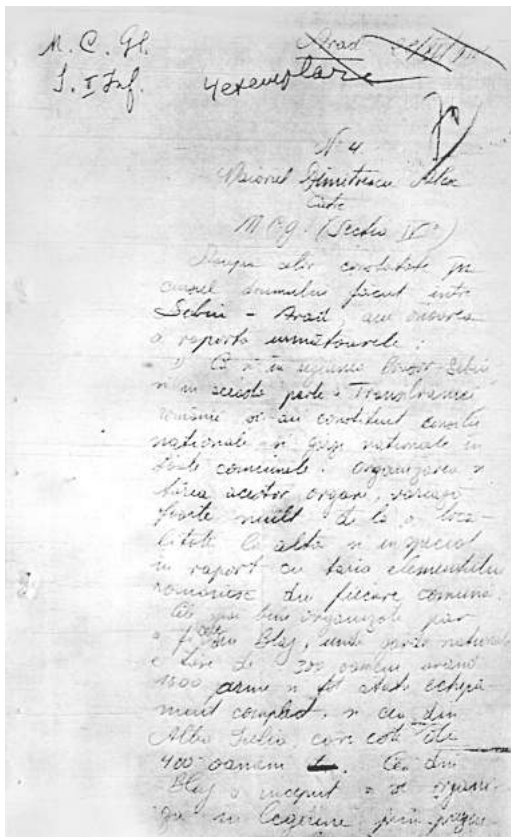 M. C. Gl.
S. I Inf.
Arad
4 exemplare
No 4
Maiorul Dimitrescu
către
M.C.G. (Secția IV)
Asupra celor constatate în
cursul drumului făcut între
Sebiu - Arad am onoarea
a raporta următoarele:
1) Că și în regiunea Brașov-Sebiu
și în această parte a Transilvaniei
românii și-au constituit consilii
naționale și gărzi naționale în
toate comunele. Organizarea și
tăria acestor organe, variază
foarte mult de la o loca-
litate la alta și în special
în raport cu tăria elementului
românesc din fiecare comună.
Cele mai bine organizate par
a fi cele din Blaj, unde garda națională
e tare de 300 oameni având
1500 arme și tot atâte echipa-
ment complect, și cea din
Alba Iulia, care este de
400 oameni. Cei din
Blaj a început a se organi-
za în legiune prin